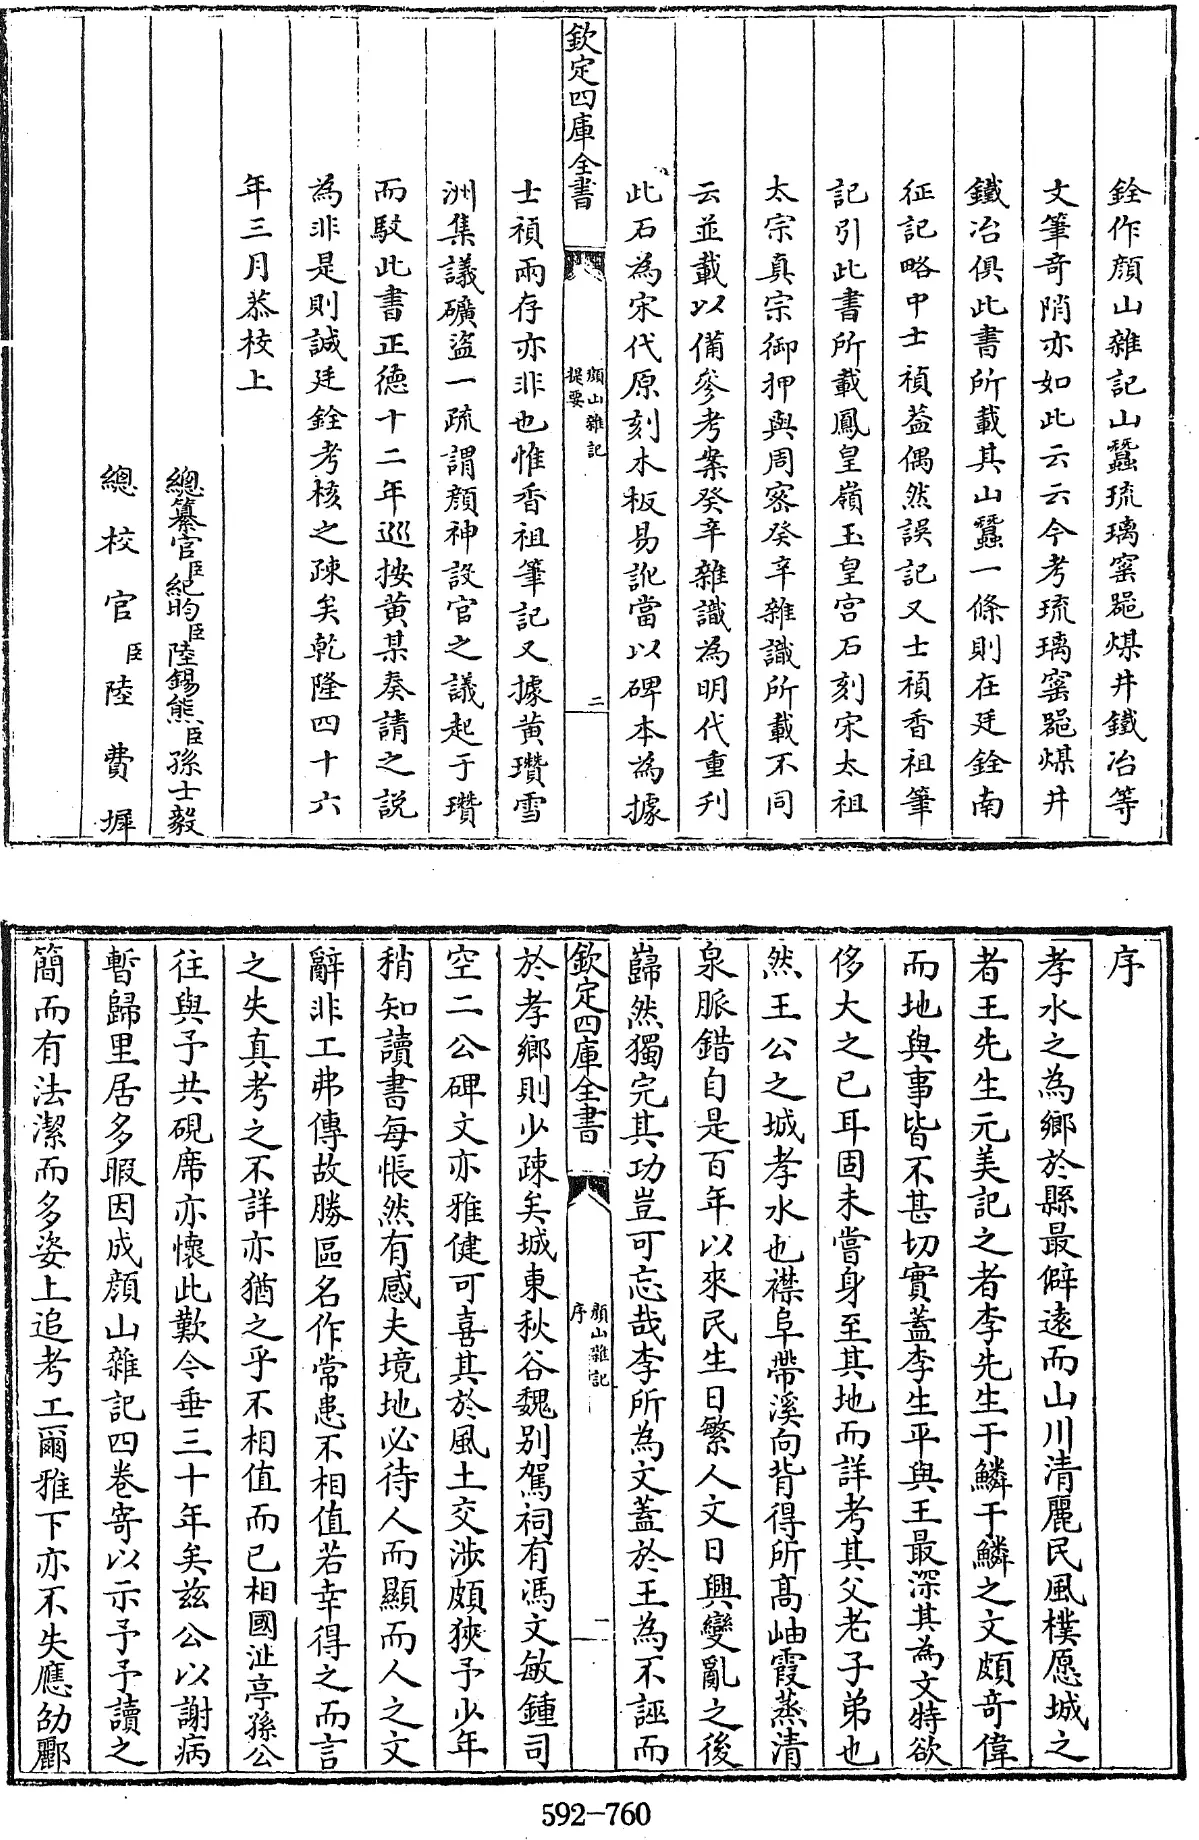 銓作顔山雜記山蠶琉璃窯器煤井鐵冶等
文筆奇陗亦如此云云今考琉璃窯器煤井
鐵冶俱此書所載其山蠶一條則在廷銓南
征記略中士禎葢偶然誤記又士禎香祖筆
記引此書所載鳳皇嶺玉皇宫石刻宋太祖
太宗真宗御押與周宻癸辛雜識所載不同
云並載以備參考案癸辛雜識為明代重刋
此石為宋代原刻木板易訛當以碑本為據
欽定四庫全書
顔山雜記
提要
二
士禎兩存亦非也惟香祖筆記又據黄瓚雪
洲集議礦盜一疏謂顔神設官之議起于瓚
而駁此書正德十二年巡按黄某奏請之説
為非是則誠廷銓考核之疎矣乾隆四十六
年三月恭校上
總纂官臣紀昀臣陸錫熊臣孫士毅
總校官臣陸費墀
序
孝水之為鄉於縣最僻遠而山川清麗民風樸愿城之
者王先生元美記之者李先生于鱗于鱗之文頗竒偉
而地與事皆不甚切實蓋李生平與王最深其為文特欲
侈大之已耳固未嘗身至其地而詳考其父老子弟也
然王公之城孝水也襟阜帶溪向背得所髙岫霞蒸清
泉脈錯自是百年以來民生日繁人文日興變亂之後
巋然獨完其功豈可忘哉李所為文蓋於王為不誣而
欽定四庫全書
顔山雜記
序
一
於孝鄉則少疎矣城東秋谷魏别駕祠有馮文敏鍾司
空二公碑文亦雅健可喜其於風土交涉頗狹予少年
稍知讀書每悵然有感夫境地必待人而顯而人之文
辭非工弗傳故勝區名作常患不相值若幸得之而言
之失真考之不詳亦猶之乎不相值而已相國沚亭孫公
往與予共硯席亦懷此歎今垂三十年矣兹公以謝病
暫歸里居多暇因成顔山雜記四卷寄以示予予讀之
簡而有法潔而多姿上追考工爾雅下亦不失應劭酈
592-760